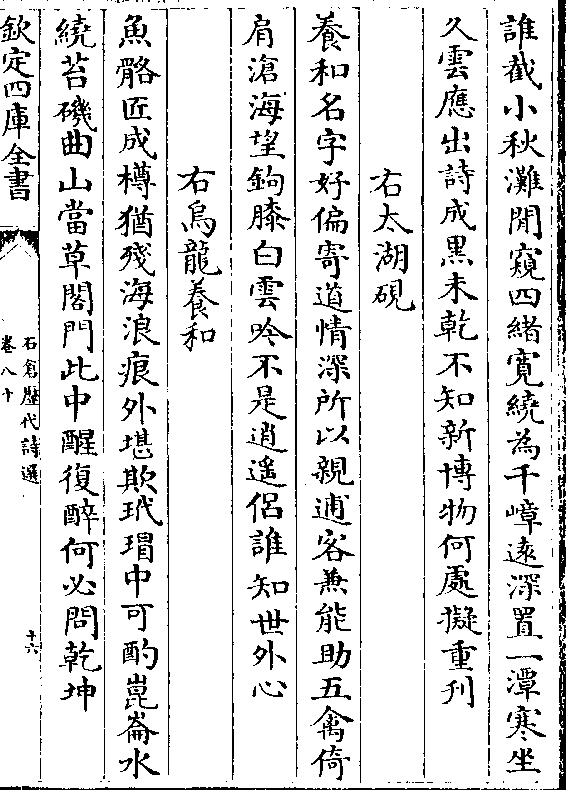 誰截小秋灘閒窺四緒寬繞為千嶂遠深置一潭寒坐
久雲應出詩成黑未乾不知新博物何處擬重刋
右太湖硯
養和名字好偏寄道情深所以親逋客兼能助五禽倚
肩滄海望鉤膝白雲吟不是逍遥侶誰知世外心
右烏龍養和
魚骼匠成樽猶殘海浪痕外堪欺玳瑁中可酌崑崙水
繞苔磯曲山當草閣門此中醒復醉何必問乾坤
欽定四庫全書
石倉歷代詩選
卷八十
十六